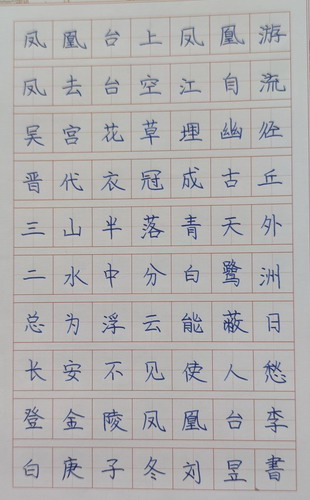 凤凰台上凤凰游
凤去台空江自流
吴宫花草埋幽径
晋代衣冠成古丘
三山半落青天外
二水中分白鹭洲
总为浮云能蔽日
长安不见使人愁
登金陵凤凰台李
白庚子冬刘昱書